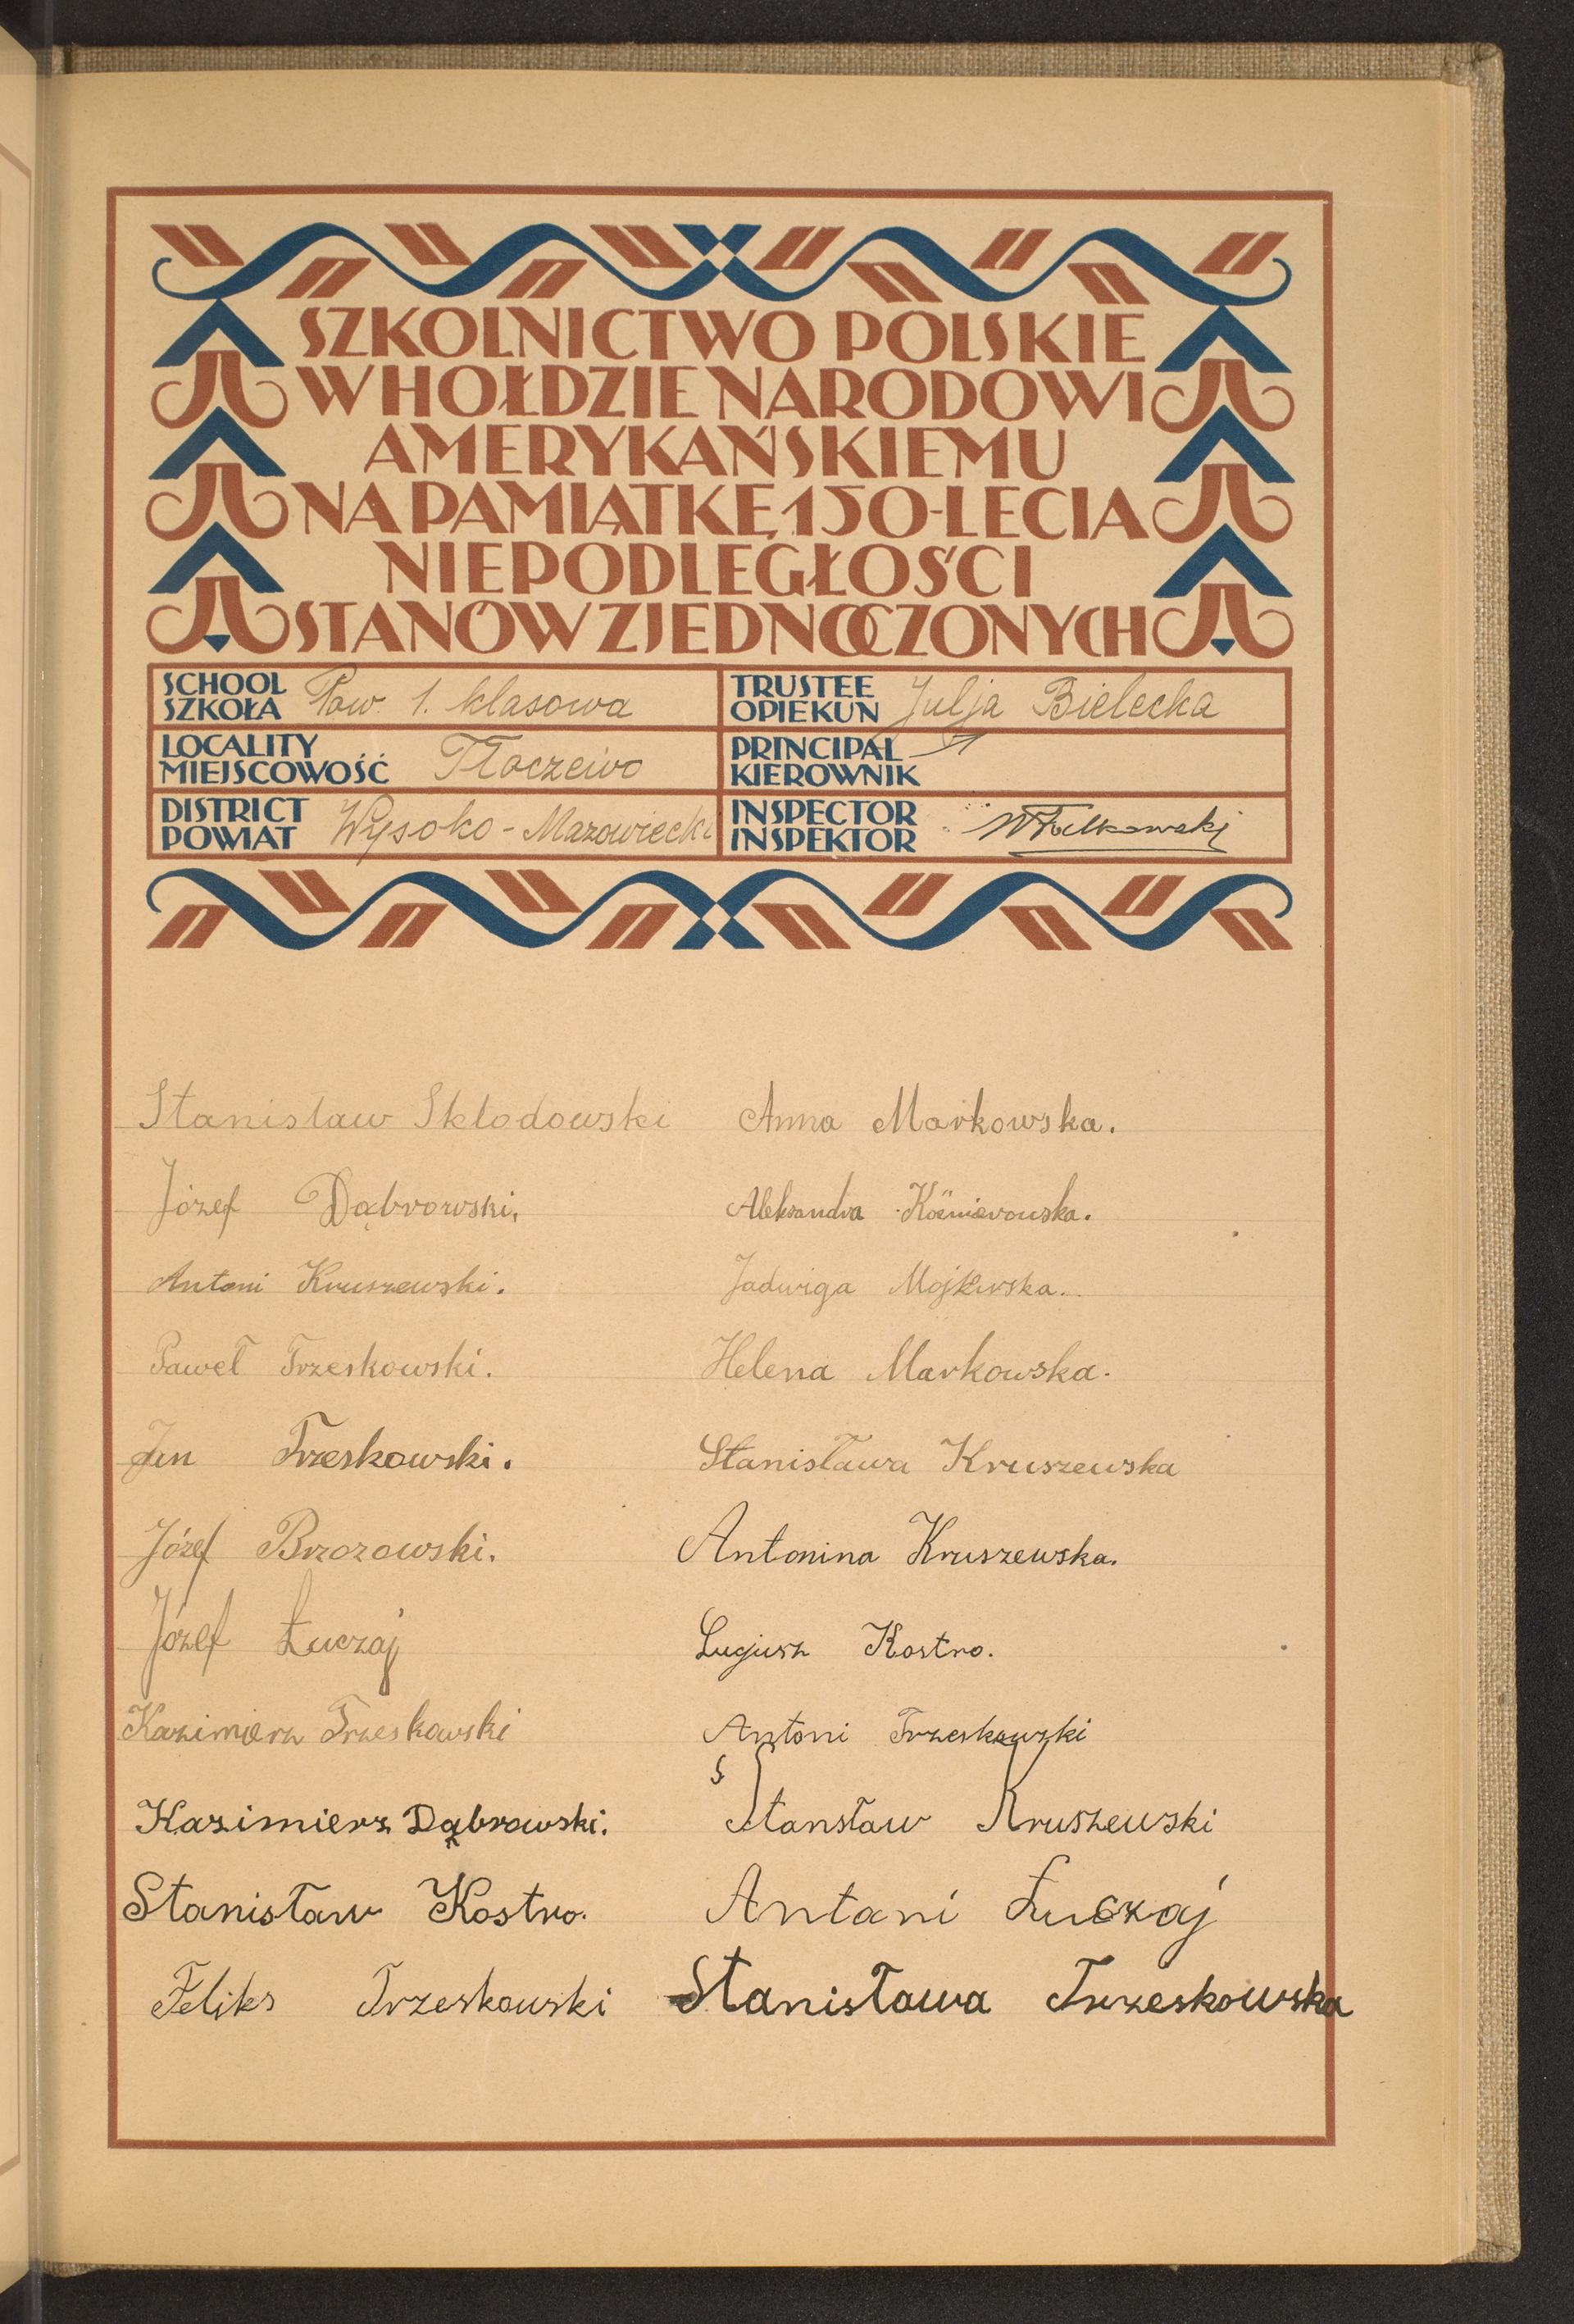 SZKOLNICTWO POLSKIE
W HOŁDZIE NARODOWI
AMERYKAŃSKIEMU
NA PAMIĄTKĘ 150-LECIA
NIEPODLEGŁOŚCI
STANÓW ZJEDNOCZONYCH
SCHOOL
SZKOŁA
Pow. 1. klasowa
TRUSTEE
OPIEKUN
Julja Bielecka
LOCALITY
MIEJSCOWOŚĆ
Tłoczewo
PRINCIPAL
KIEROWNIK
DISTRICT
POWIAT
Wysoko-Mazowiecki
INSPECTOR
INSPEKTOR
Stanislaw Sklodowski
Anna Markowska.
Józef Dąbrowski.
Aleksandra
Antoni Kruszewski.
Jadwiga
Paweł Trzeskowski.
Helena Markowska.
Jan Trzeskowski.
Stanisława Kruszewska
Józef Brzozowski.
Antonina Kruszewska.
Józef Łuczaj
Lugjusz Kostro.
Kazimierz Trzeskowski
Antoni Trzeskowski
Kazimierz Dąbrowski.
Stansław Kruszewski
Stanisław Kostro.
Antani Łuczaj
Feliks Trzeskowski
Stanisława Trzeskowska